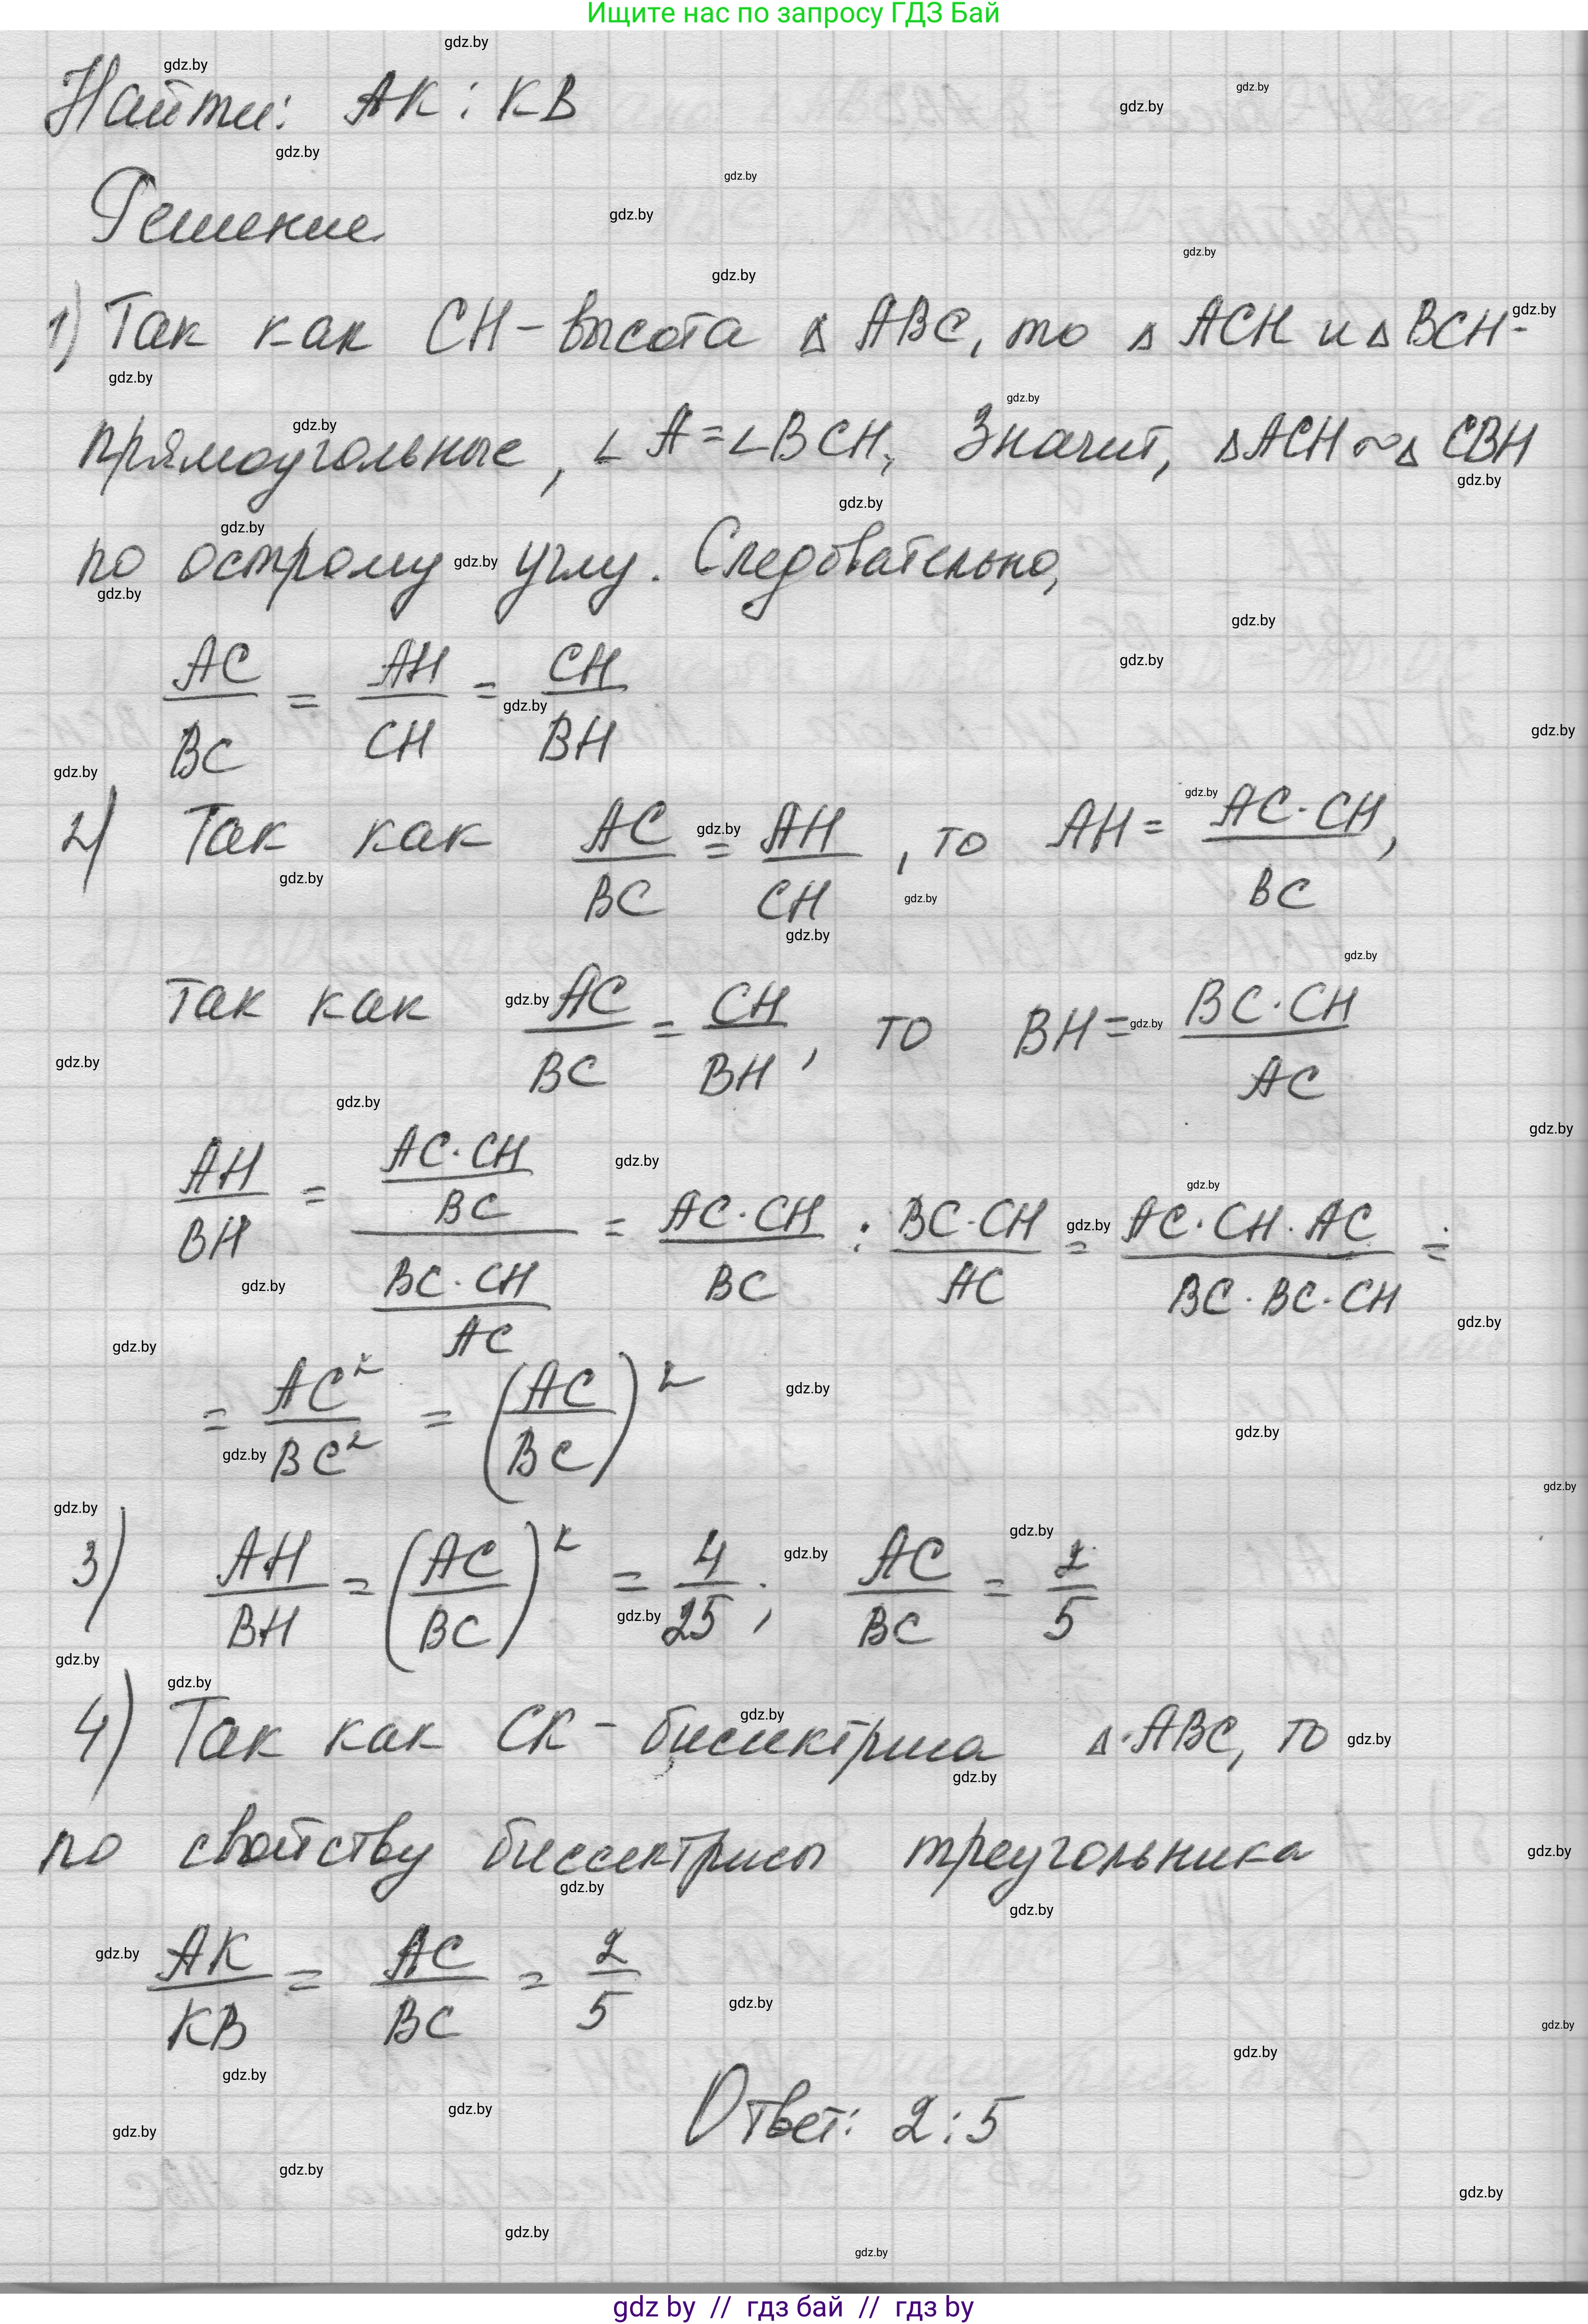 Ищите нас по запросу ГДЗ Бай
Найти: AK : KB
Решение
1) Так как CH - высота △ ABC, то △ ACH и △ BCH -
прямоугольные, ∠A = ∠BCH, Значит, △ACH ~ △ CBH
по острому углу. Следовательно,
AC/BC = AH/CH = CH/BH
2) Так как AC/BC = AH/CH, то AH = AC·CH/BC,
так как AC/BC = CH/BH, то BH = BC·CH/AC
AH/BH = (AC·CH/BC)/(BC·CH/AC) = AC·CH/BC : BC·CH/AC = AC·CH·AC/BC·BC·CH =
= AC²/BC² = (AC/BC)²
3) AH/BH = (AC/BC)² = 4/25; AC/BC = 2/5
4) Так как CK - биссектриса △ ABC, то
по свойству биссектрисы треугольника
AK/KB = AC/BC = 2/5
Ответ: 2 : 5
gdz by // гдз бай // гдз by